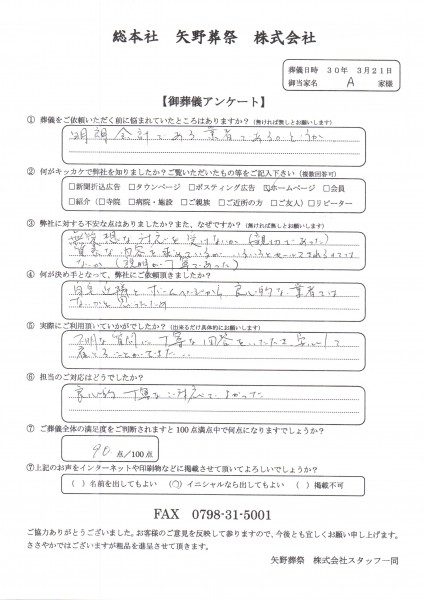 総本社 矢野葬祭 株式会社
葬儀日時 30年 3月21日
御当家名 A 家様
【御葬儀アンケート】
① 葬儀をご依頼いただく前に悩まれていたところはありますか?(無ければ無しとお願いします)
明朗会計である業者であるのかどうか
② 何がキッカケで弊社を知りましたか?ご覧いただいたもの等をご記入下さい(複数回答可)
□新聞折込広告 □タウンページ □ポスティング広告 ☑ホームページ □会員
□紹介(□寺院 □病院・施設 □ご親族 □ご近所の方 □ご友人)□リピーター
③ 弊社に対する不安な点はありましたか?また、なぜですか?(無ければ無しとお願いします)
無愛想な対応を受けないか(親切であった)
質素な内容を求めているが、いろいろとセールスされるのでは
ないか(説明が丁寧であった)
④ 何が決め手となって、弊社にご依頼頂きましたか?
自宅近様とホームページから良心的な業者では
ないかと思ったため
⑤ 実際にご利用頂いていかがでしたか?(出来るだけ具体的にお願いします)
不明な質問に丁寧な回答をいただき安心して
座ることができました..
⑥ 担当のご対応はどうでしたか?
良心的 丁寧な対応でよかった
⑦ ご葬儀全体の満足度をご判断されますと100点満点中で何点になりますでしょうか?
90 点/100点
⑦上記のお声をインターネットや印刷物などに掲載させて頂いてよろしいでしょうか?
( )名前を出してもよい (○)イニシャルなら出してもよい ( )掲載不可
FAX 0798-31-5001
ご協力ありがとうございました。お客様のご意見を反映して参りますので、今後とも宜しくお願い申し上げます。
ささやかではございますが粗品を進呈させて頂きます。
矢野葬祭 株式会社スタッフ一同